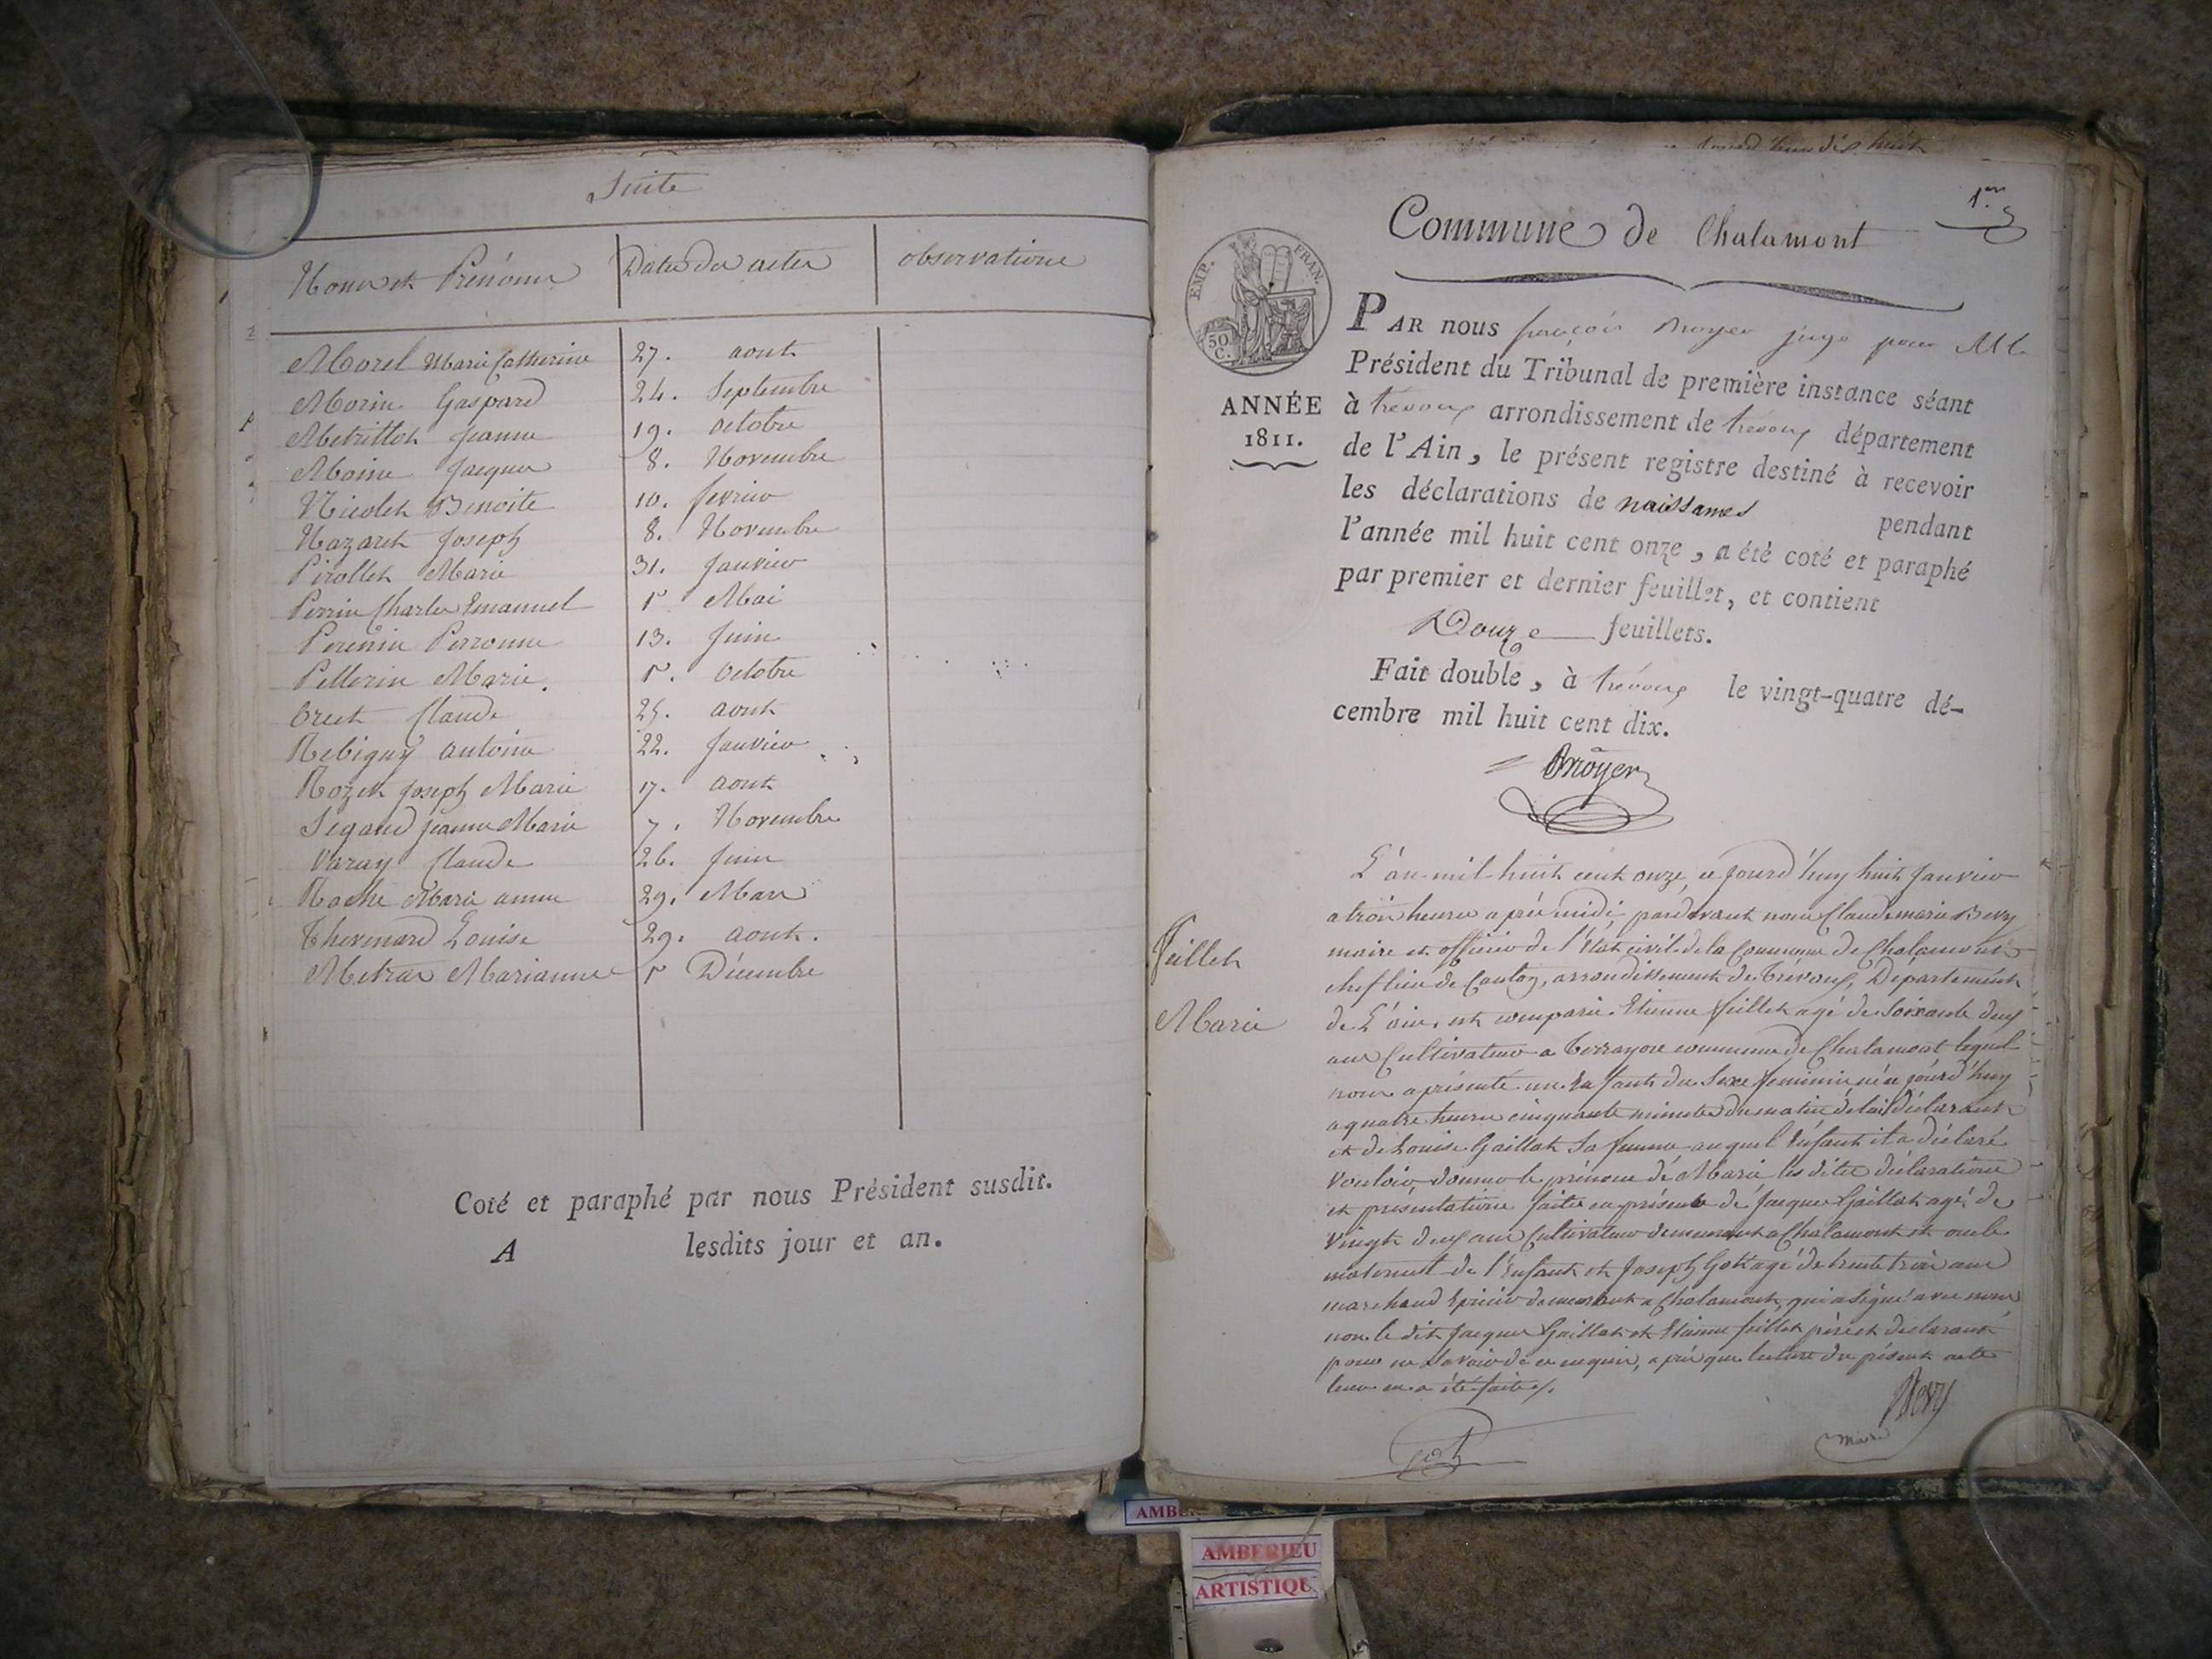 Suite
Noms et Prénoms
Dates des actes
observations
Morel Marie Catherine 27. aout
Morin Gaspard 24. Septembre
Metrillot Jeanne 19. octobre
Moine Jacques 8. Novembre
Nicolet Benoite 10. fevrier
Nazaret Joseph 8. Novembre
Pirollet Marie 31. Janvier
Perrin Charles Emanuel 5 Mai
Perenin Perronne 13. Juin
Pellerin Marie. 5. octobre
Claude 25. aout
Rebigny antoine 22. Janvier
Rozet Joseph Marie 17. aout
Segaud jeanne Marie 7. Novembre
Varay Claude 26. Juin
Roche Marie anne 29. Mars
Thevenard Louise 29. aout.
Metras Marianne 5 Décembre
Coté et paraphé par nous Président susdit.
A lesdits jour et an.
1er
Commune de Chalamont
EMP. FRAN.
50 C.
ANNÉE
1811.
PAR nous françois moyer juge pour M. le
Président du Tribunal de première instance séant
à trevoux arrondissement de trevoux département
de l'Ain, le présent registre destiné à recevoir
les déclarations de naissances pendant
l'année mil huit cent onze, a été coté et paraphé
par premier et dernier feuillet, et contient
Douze feuillets.
Fait double, à trévoux le vingt-quatre dé-
cembre mil huit cent dix.
feillet
Marie
L'an mil huit cent onze, ce jourd'huy huit Janvier
a trois heures après midi, pardevant nous Claude marie Bevy
maire et officier de l'État civil de la Commune de Chalamont
chef lieu de Canton, arrondissement de Trévoux, Département
de L'ain, est comparu Etienne feillet agé de Soixante deux
ans Cultivateur a commune de Chalamont lequel
nous a présenté un Enfant du Sexe feminin né ce jourd'huy
a quatre heures cinquante minutes du matin de lui déclarant
et de Louise Gaillat Sa femme auquel Enfant il a déclaré
vouloir donner le prénom de Marie les dites déclarations
et présentations faites en présence de Jacques Gaillat agé de
vingt deux ans Cultivateur demeurant a Chalamont et oncle
maternel de l'Enfant et Joseph Got agé de trente trois ans
marchand Epicier demeurant a Chalamont, qui a signé avec nous
non le dit Jacques Gaillat et Etienne feillet père et declarant
pour ne Savoir de ce enquis, après que lecture du présent acte
leur en a été faite.
got
Bevy
maire
AMBERIEU
ARTISTIQUE